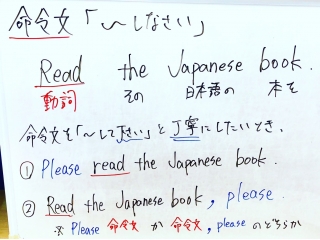 命令文「〜しなさい」
Read the Japanese book.
動詞 その 日本語の 本を
命令文を「〜して下さい」と丁寧にしたいとき、
① Please read the Japanese book.
② Read the Japanese book, please.
※ Please 命令文 か 命令文, please のどちらか